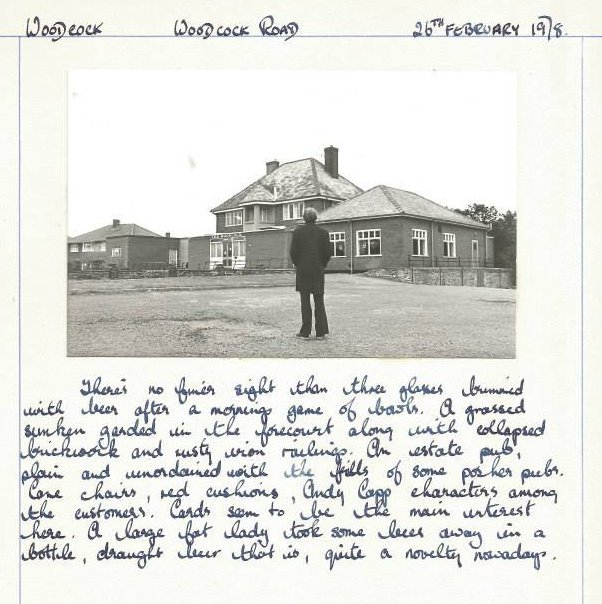 WOODCOCK WOODCOCK ROAD 26TH FEBRUARY 1978.
There's no finer sight than three glasses brimmed
with beer after a mornings game of bowls. A grassed
sunken garded in the forecourt along with collapsed
brickwork and rusty iron railings. An estate pub,
plain and unordained with the frills of some posher pubs.
Cane chairs, red cushions, Andy Capp characters among
the customers. Cards seem to be the main interest
here. A large fat lady took some beer away in a
bottle, draught beer that is, quite a novelty nowadays.